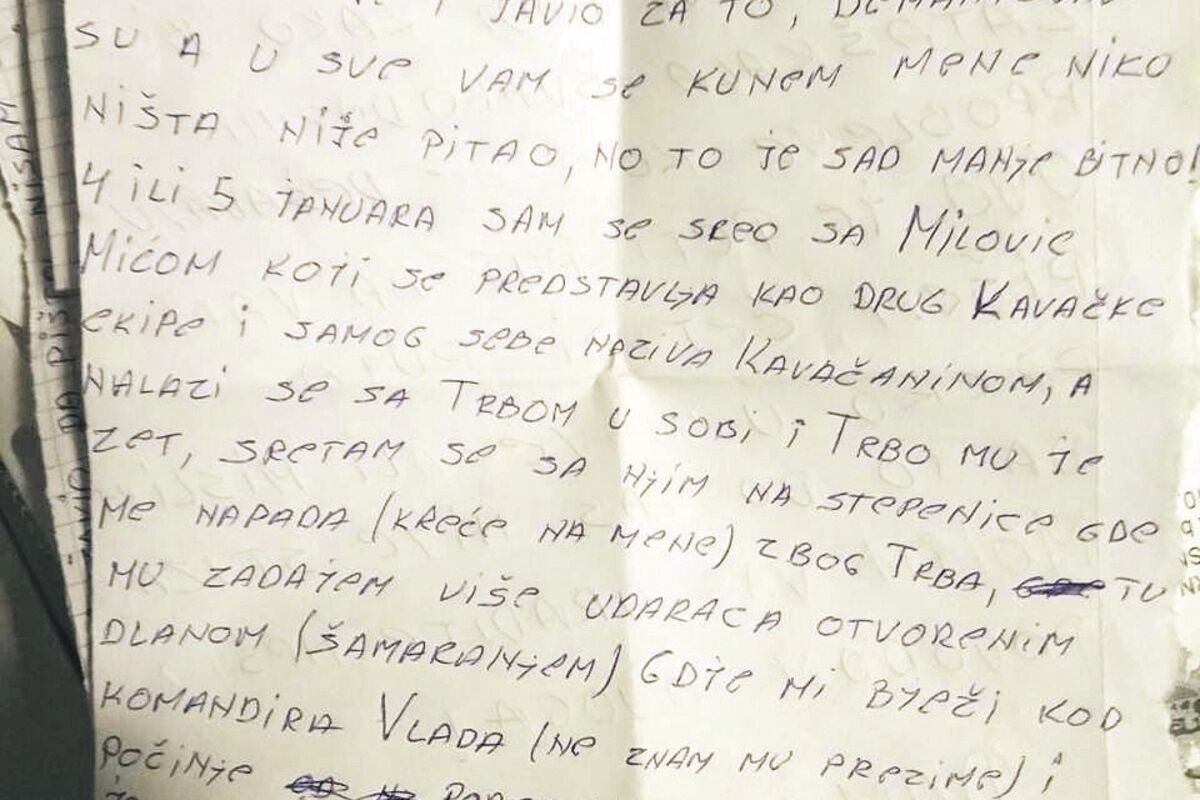 I JAVIO ZA TO,
SU A U SVE VAM SE KUNEM MENE NIKO
NIŠTA NIJE PITAO, NO TO JE SAD MANJE BITNO!
4 ILI 5 JANUARA SAM SE SREO SA MILOVIC
MIĆOM KOJI SE PREDSTAVLJA KAO DRUG KAVAČKE
EKIPE I SAMOG SEBE NAZIVA KAVAČANINOM, A
NALAZI SE SA TRBOM U SOBI I TRBO MU JE
ZET, SRETAM SE SA NJIM NA STEPENICE GDE
ME NAPADA (KREĆE NA MENE) ZBOG TRBA, TU
MU ZADAJEM VIŠE UDARACA OTVORENIM
DLANOM (ŠAMARANJEM) GDJE MI BJEŽI KOD
KOMANDIRA VLADA (NE ZNAM MU PREZIME) I
POČINJE
JAVIO DA PIŠE NISAM